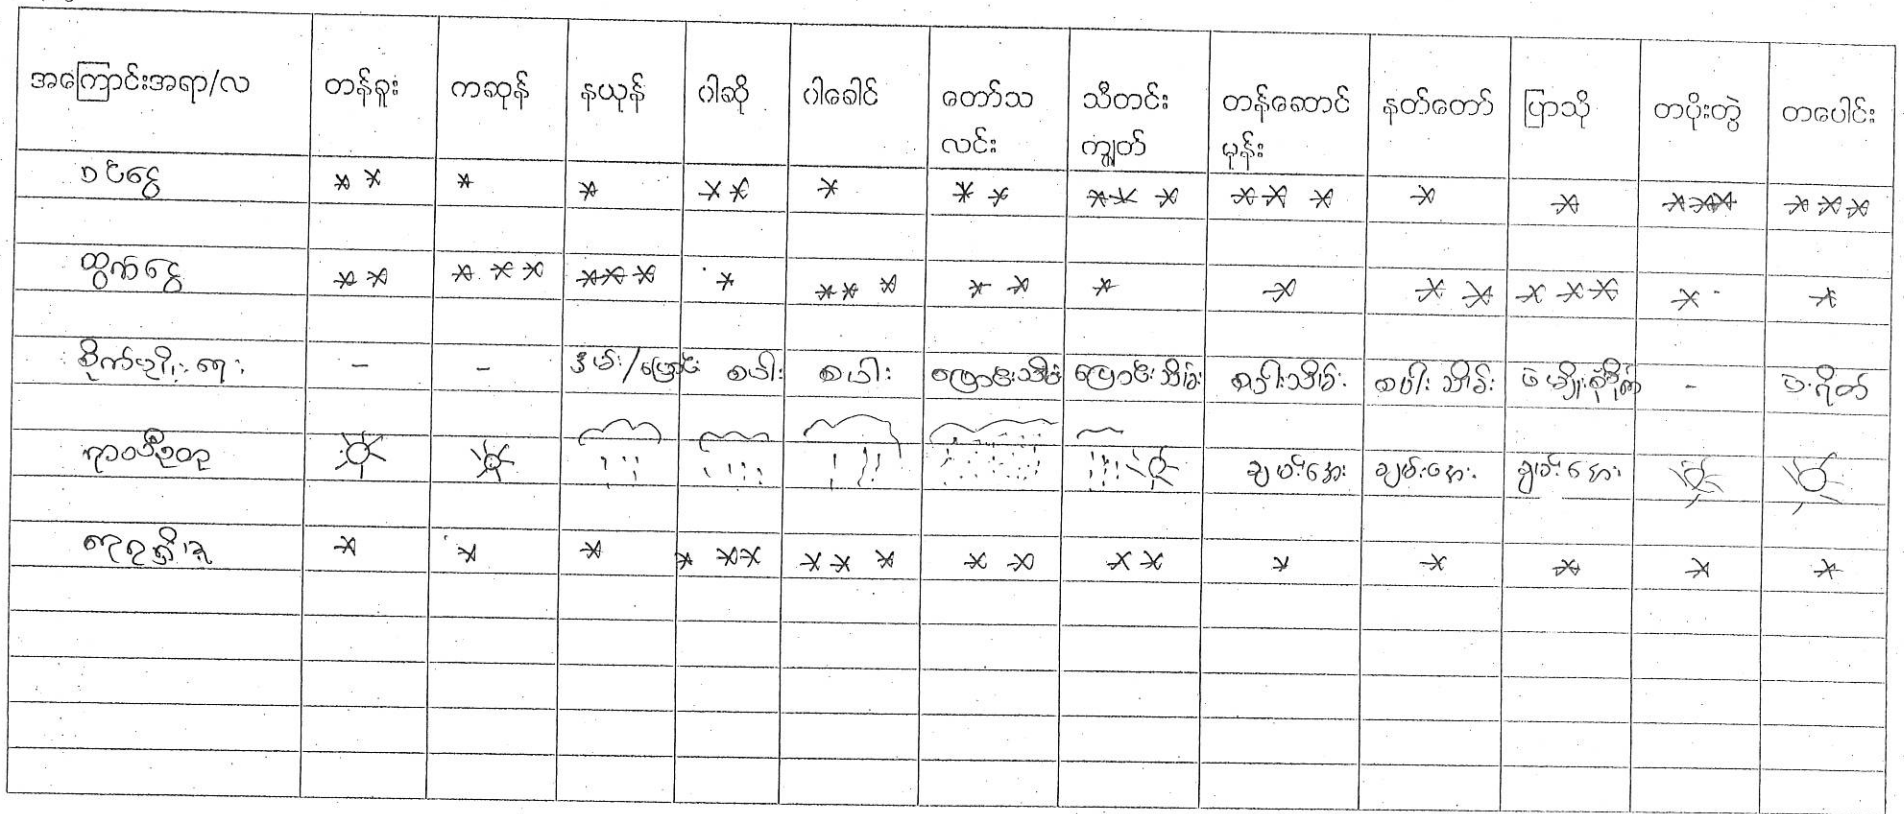 အကြောင်းအရာ/လ တန်ခူး ကဆုန် နယုန် ဝါဆို ဝါခေါင် တော်သလင်း သီတင်းကျွတ် တန်ဆောင်မုန်း နတ်တော် ပြာသို တပိုးတွဲ တပေါင်း
ဝင်ငွေ
ထွက်ငွေ
စိုက်ပျိုးရေး - - နှမ်း/ပြောင်း စပါး စပါး ပြောင်းသိမ်း ပြောင်းသိမ်း စပါးသိမ်း စပါးသိမ်း -
ရာသီဥတု ချမ်းအေး ချမ်းအေး ချမ်းအေး